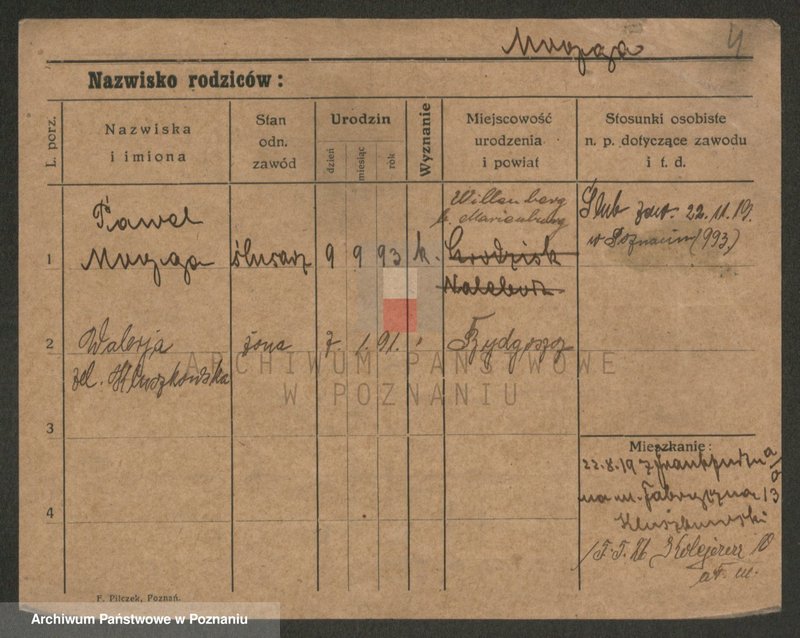 Mrozga
Nazwisko rodziców:
L. porz.
Nazwiska
i imiona
Stan
odn.
zawód
Urodzin
dzień
miesiąc
rok
Wyznanie
Miejscowość
urodzenia
i powiat
Stosunki osobiste
n. p. dotyczące zawodu
i t. d.
1
Paweł
Mrozga
ślusarz
9 9 93
k.
Willenberg
b. Marienburg
Grodzisk
Ślub zaw. 22.11.19.
w Poznaniu (993.)
2
Walerja
żona
7. 1. 91.
Bydgoszcz
ARCHIWUM PAŃSTWOWE
W POZNANIU
3
4
Mieszkanie:
22.8.19 z Frankfurtu a/O
na ul. Fabryczna 13
Kluszkowski
F. Pilczek, Poznań.
Archiwum Państwowe w Poznaniu